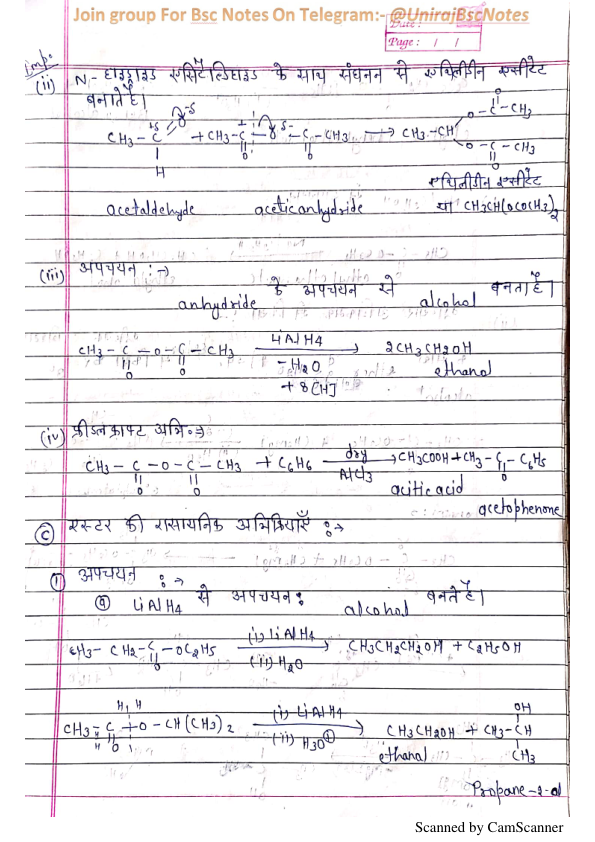 Join group For Bsc Notes On Telegram:- @UnirajBscNotes
Date :
Page : / /
imp.
(ii) N- हाइड्राइड एसिटैल्डिहाइड के साथ संघनन से एथिलीडीन एसीटेट
बनाते है।
CH3 - C + CH3 - C - O - C - CH3 → CH3 - CH
H
O - C - CH3
O - C - CH3
एथिलीडीन एसीटेट
acetaldehyde acetic anhydride या CH3CH(OCOCH3)2
(iii) अपचयन :→
anhydride के अपचयन से alcohol बनता है।
CH3 - C - O - C - CH3 LiAlH4 → 2CH3CH2OH
O O -H2O ethanol
+ 8[H]
(iv) फ्रीडल क्राफ्ट अभि. ⇒
CH3 - C - O - C - CH3 + C6H6 dry AlCl3 → CH3COOH + CH3 - C - C6H5
O O O
acitic acid acetophenone
(C) एस्टर की रासायनिक अभिक्रियाएँ :→
(1) अपचयन :→
(a) LiAlH4 से अपचयन : alcohol बनते है।
CH3 - CH2 - C - OC2H5 (i) LiAlH4 → CH3CH2CH2OH + C2H5OH
O (ii) H2O
H, H OH
CH3 - C - O - CH(CH3)2 (i) LiAlH4 → CH3CH2OH + CH3 - CH
O (ii) H3O⊕ ethanol CH3
Propane-2-ol
Scanned by CamScanner